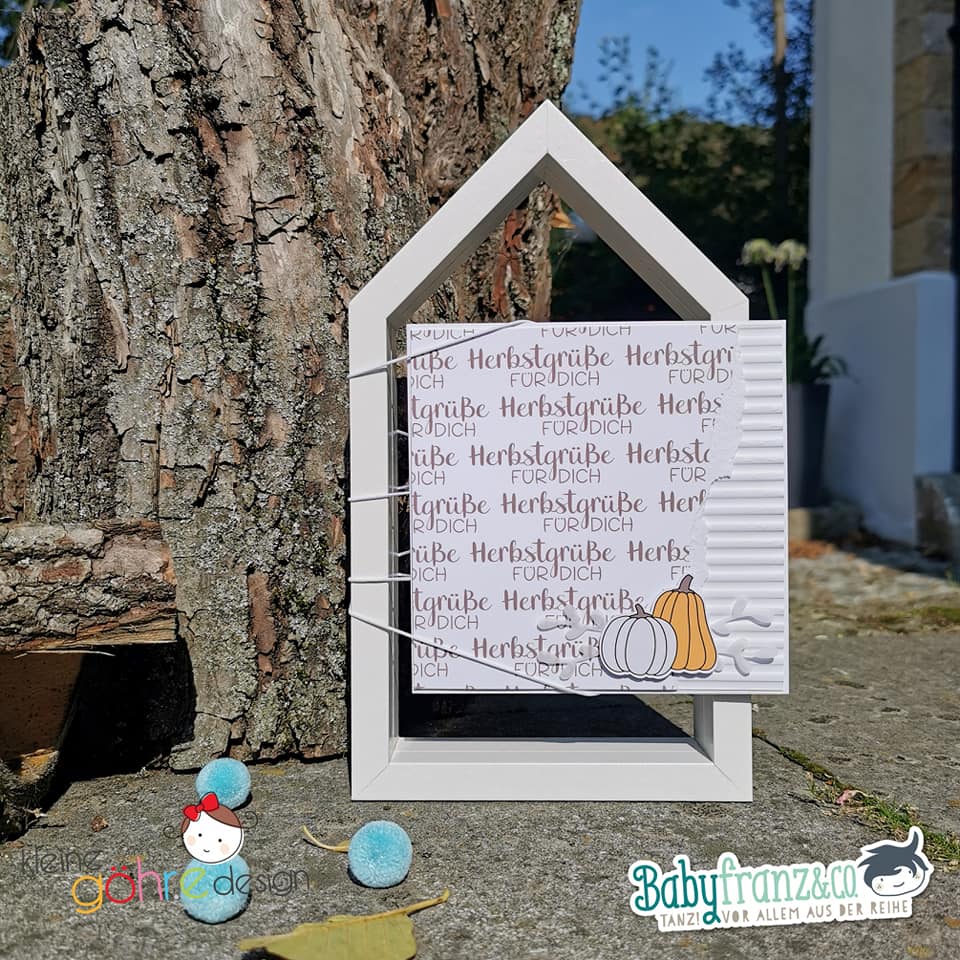 FÜR DICH FÜR DICH FÜR
rüße Herbstgrüße Herbstgrü
DICH FÜR DICH FÜR DI
tgrüße Herbstgrüße Herbs
FÜR DICH FÜR DICH
rüße Herbstgrüße Herbstg
DICH FÜR DICH FÜR
tgrüße Herbstgrüße Herb
FÜR DICH FÜR DICH
rüße Herbstgrüße Herbs
DICH FÜR DICH FÜ
tgrüße Herbstgrüße
FÜR DICH FÜR DICH
rüße Herbstgrüße
DICH FÜR DICH
kleine
göhre design
Babyfranz&Co.
TANZ! VOR ALLEM AUS DER REIHE